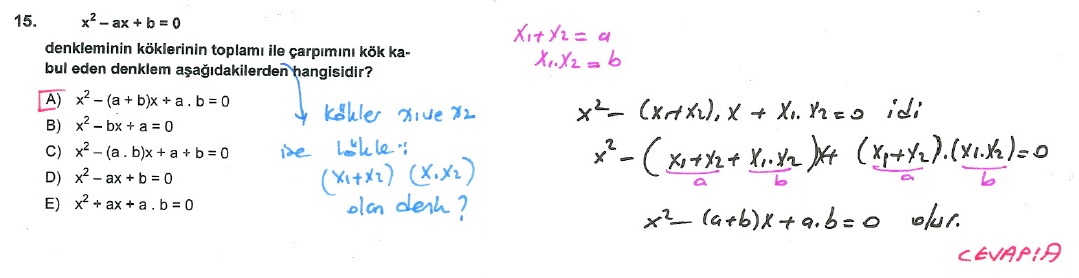 15. x² – ax + b = 0
denkleminin köklerinin toplamı ile çarpımını kök ka-
bul eden denklem aşağıdakilerden hangisidir?
A) x² – (a + b)x + a . b = 0
B) x² – bx + a = 0
C) x² – (a . b)x + a + b = 0
D) x² – ax + b = 0
E) x² + ax + a . b = 0
kökler x₁ ve x₂
ise kökle:
(x₁+x₂) (x₁x₂)
olan denk?
x₁+x₂ = a
x₁.x₂ = b
x² – (x₁+x₂).x + x₁.x₂ = 0 idi
x² – (x₁+x₂ + x₁.x₂)x + (x₁+x₂).(x₁.x₂) = 0
a b a b
x² – (a+b)x + a.b = 0 olur.
CEVAP:A